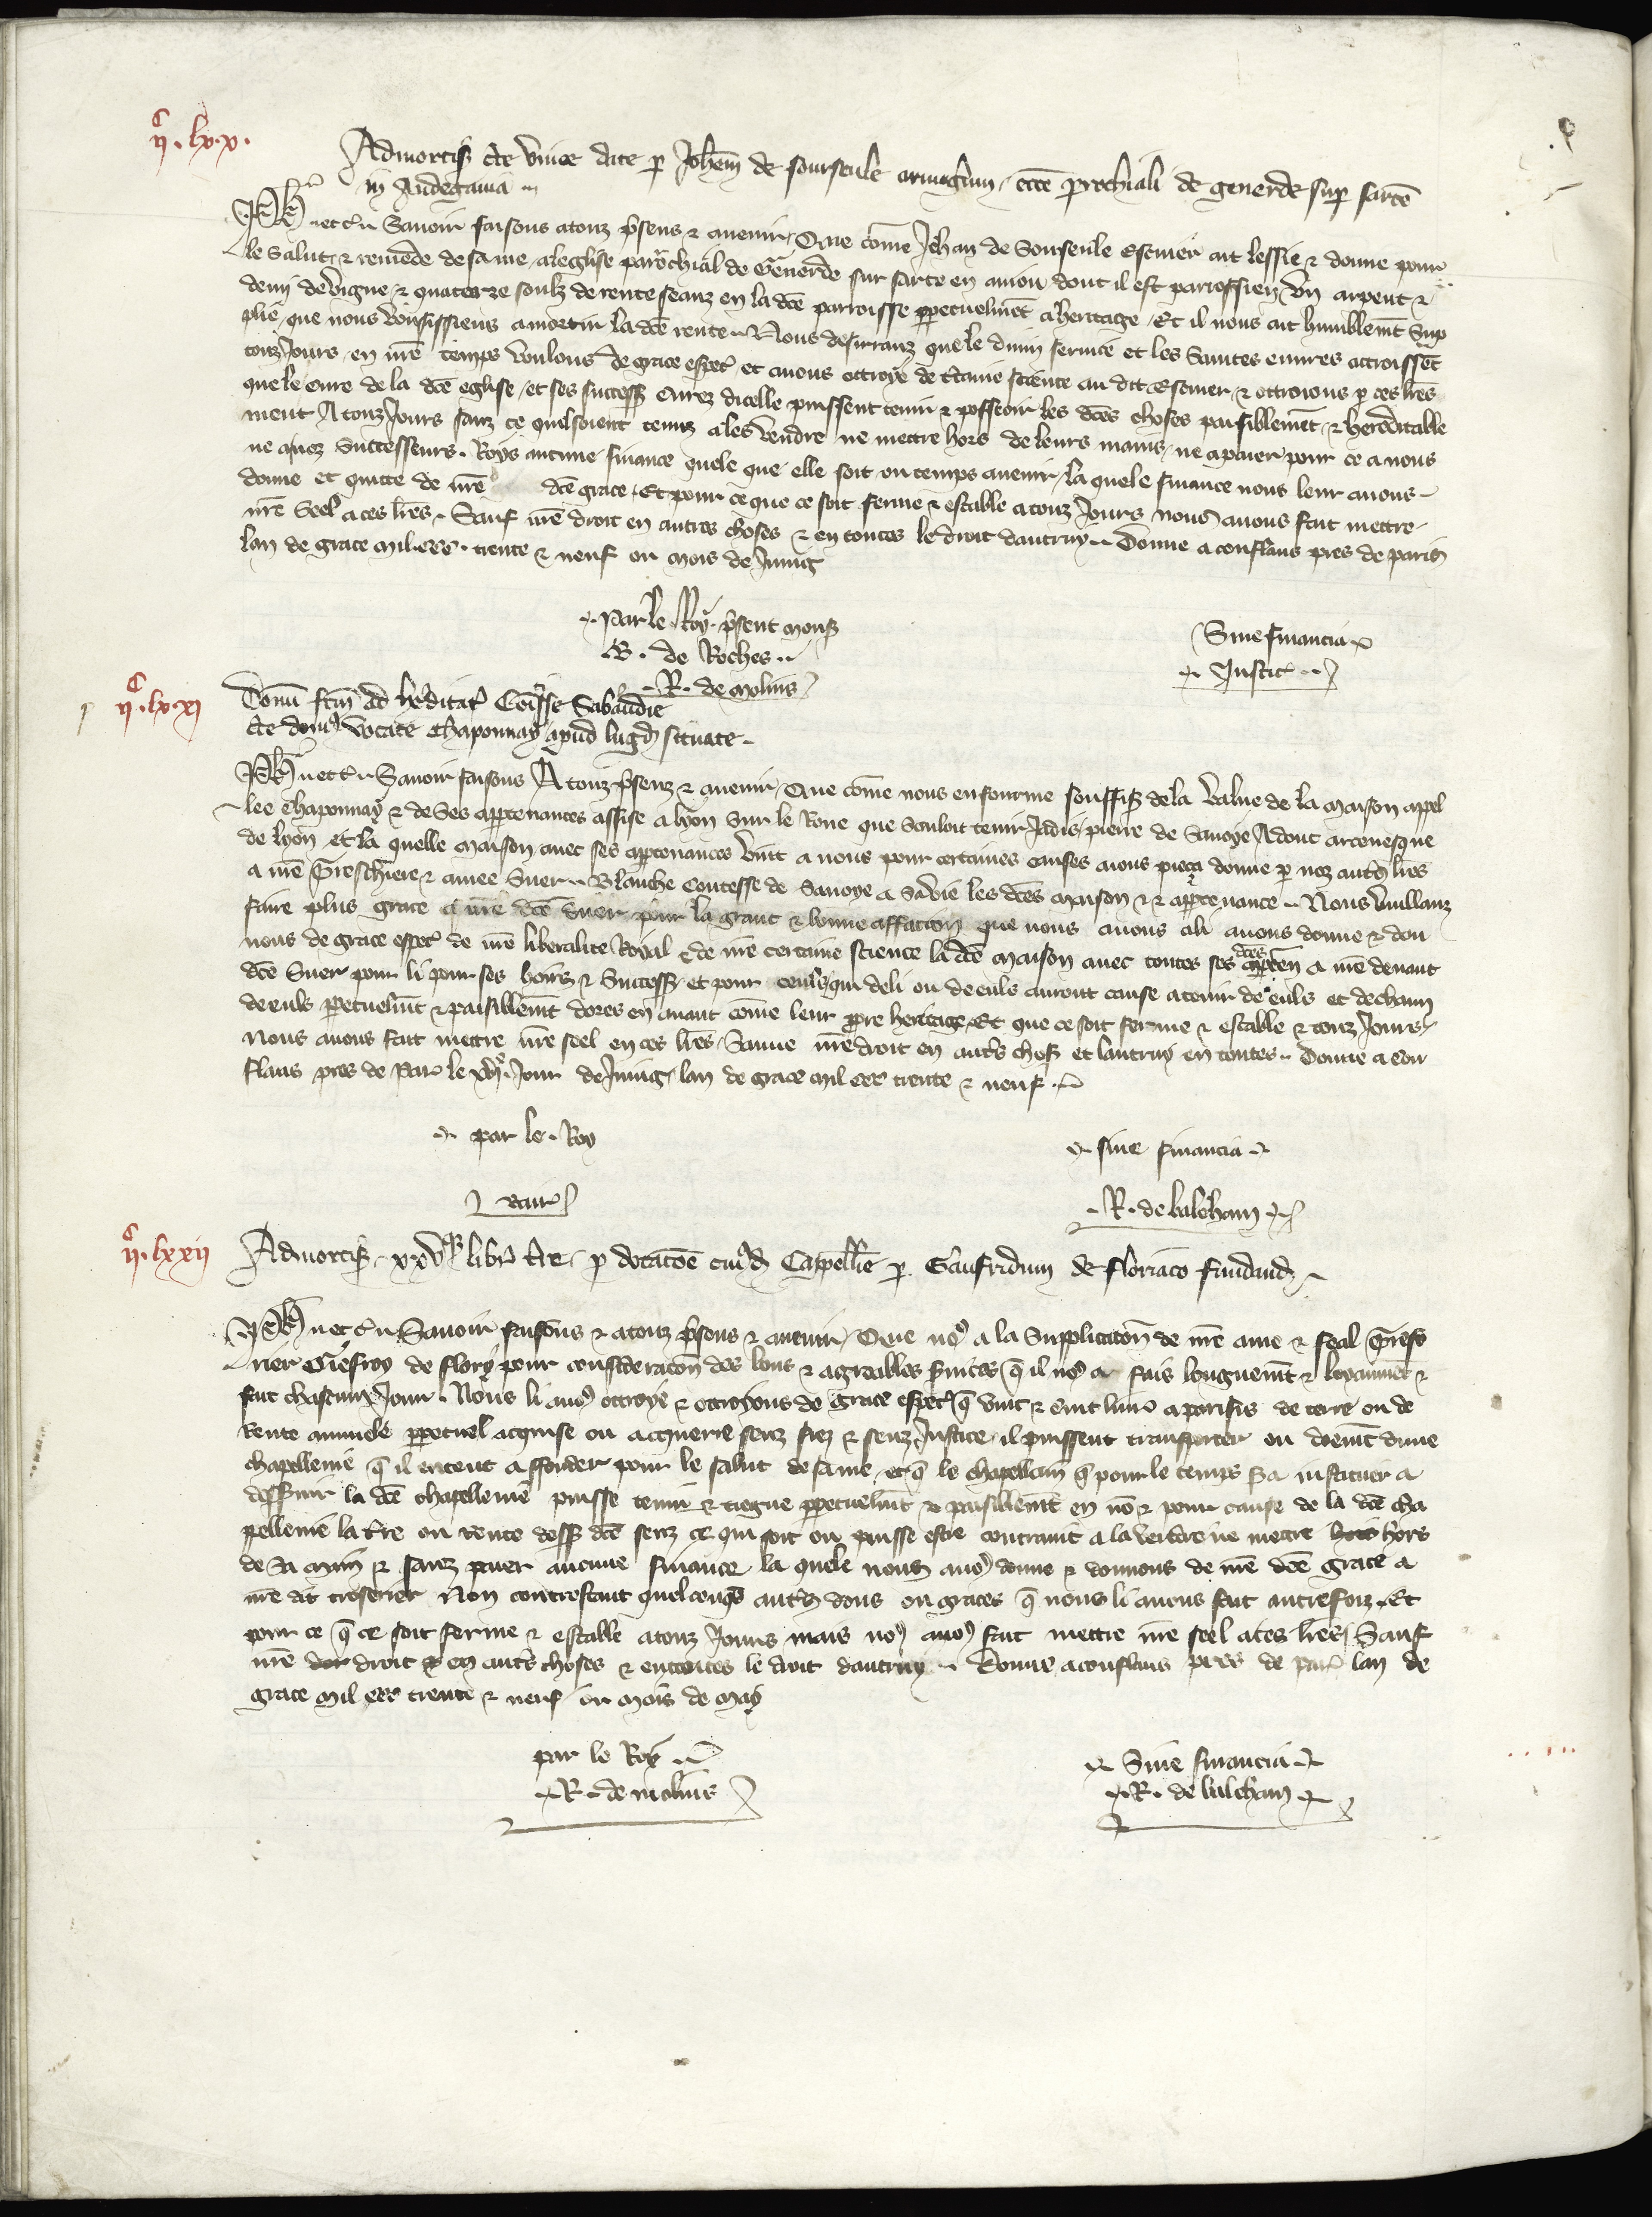 ii.c lxx.
Admortiſ cͭe vinee date ꝑ Joh̃em de sourseule armigerum, eccl̃e parrochiali de generde sup̱ sartẽ
in Andegavia
Ph̃ et c̃ Savoir faisons a touz p̃sens ⁊ avenir, Que cõme Jehan de Sourseule Escuier ait lessie ⁊ donne pour
le Salut, ⁊ remede de same, aleglise parrochial de Generde sur sarte en aniou dont il est parroissien, Un arpent ⁊
demi de vigne, ⁊ quatorze soulz de rente seanz en la dc̃e parroisse ꝑpetuelmẽt a heritage, Et il nous ait humblemẽt Sup
plie, que nous vousissiens amortir la dc̃e rente, Nous desirranz que le divin service et les Saintes euvres accroissẽt
touz Jours, en nr̃e temps voulons de grace esp̃ec̃ et avons ottroye de c̃taine science au dit Escuier, ⁊ ottroions ꝑ ces lr̃es
que le cure de la dc̃e eglise, et ses success̃ Curez dicelle puissent tenir ⁊ posseoir les dc̃es choses paisiblemẽt, ⁊ hereditable
ment A touz Jours sanz ce quil soient tenuz a les vendre ne mettre hors de leurs mains, ne a paier pour ce a nous
ne a noz successeurs Roys aucune finance quele que elle soit ou temps avenir, la quele finance nous leur avons
donne et quitte de nr̃e dc̃e grace, Et pour ce que ce soit ferme ⁊ estable a touz Jours nous avons fait mettre
nr̃e Seel a ces lr̃es, Sauf nr̃e droit en autres choses ⁊ en toutes le droit dautruy, Donne a conflans pres de paris
lan de grace mil.ccc. trente ⁊ neuf ou mois de Juing
Par le Roy, p̃sent mons̃
B. de Roches
R. de molins
Sine financia
Justic̃
ii.c lxxi
Donũ fc̃m ad h̃editat̃ Comitisse Sabaudie
de domo vocate Chaponnay apud lugd̃ situate
Ph̃ et c̃ Savoir faisons A touz p̃senz ⁊ avenir, Que cõme nous enfourme souffis̃ de la value de la maison appel
lee Chaponnay ⁊ de Ses app̱tenances assise a lyon sur le Rone que souloit tenir Jadis, pierre de Savoye Adont arcevesque
de lyon et la quelle maison avec ses app̱tenances vint a nous pour certaines causes aions pieca donne ꝑ noz autr̃s lr̃es
a nr̃e Treschiere ⁊ amee Suer, Blanche Contesse de Savoye a sa vie les dc̃es maison ⁊ app̱tenance, Nous vuillanz
faire plus grace a nr̃e dc̃e suer pour la grant ⁊ bonne affaction que nous avons a li avons donne ⁊ don
nons de grace esp̃ec̃ de nr̃e liberalite Royal ⁊ de nr̃e certaine science la dc̃e maison avec toutes ses dc̃es app̱ten a nr̃e devant
dc̃e Suer pour li pour ses hoirs ⁊ Success̃ et pour ceuls qui de li ou de euls auront cause a tenir de euls et de chaun
de euls ꝑpetuelmẽt ⁊ paisiblemẽt dores en avant cõme leur p̱pre heritage, Et que ce soit ferme ⁊ estable a touz Jours
Nous avons fait mettre nr̃e seel en ces lr̃es, Sauve nr̃e droit en autr̃s chos̃ et lautruy en toutes, Donne a con
flans pres de Par̃ le xviiͤ Jour de Juing, lan de grace mil ccc trente ⁊ neuf
par le Roy
sine financia
R. de baleham
ii.c lxxii
Admortiſ xxv libr̃ t̃re, ꝑ dotacõe cuiusd̃ Capellãie ꝑ Gaufridum de floriaco fundand̃
Ph̃ et c̃ Savoir faisons ⁊ a touz p̃sens ⁊ avenir, Que noꝰ a la Supplicatõn de nr̃e ame ⁊ feal treso
rier Giefroy de flory pour consideracõn des bons ⁊ agreables s̃vices q̃ il noꝰ a fais longuemẽt ⁊ loyaumẽt ⁊
fait chascun Jour, Nous li avoꝰ ottroye ⁊ ottroyons de grace esp̃ec̃ q̃ vint ⁊ cinc livr̃ a parisis de terre ou de
Rente annuele ꝑpetuel acquise ou acquerre senz fiez ⁊ senz Justice, il puissent transporter ou doemẽt dune
chapellenie q̃ il entent a fonder pour le salut de same, et q̃ le chapellain q̃ pour le temps s̃a institues a
desservir la dc̃e chapellenie puisse tenir ⁊ tiegne ꝑpetuelmẽt ⁊ paisiblemẽt en nõ ⁊ pour cause de la dc̃e cha
pellenie la t̃re ou rente dess̃ dc̃e senz ce qui soit ou puisse estre contraint a la vendre ne mettre hors
de sa main ⁊ sanz paier aucune finance la quele nous avoꝰ donne ⁊ donnons de nr̃e dc̃e grace a
nr̃e dit tresorier Non contrestant quelconqs̃ autr̃s dons ou graces q̃ nous li avons fait autrefoiz, Et
pour ce q̃ ce soit ferme ⁊ estable a touz Jours mais noꝰ avoꝰ fait mettre nr̃e seel a ces lr̃es, Sauf
nr̃e droit en autr̃s choses ⁊ en toutes le droit dautruy, Donne a conflans pres de par̃ lan de
grace mil ccc trente ⁊ neuf ou mois de may
par le Roy
R. de molins
Sine financia
R. de balehan